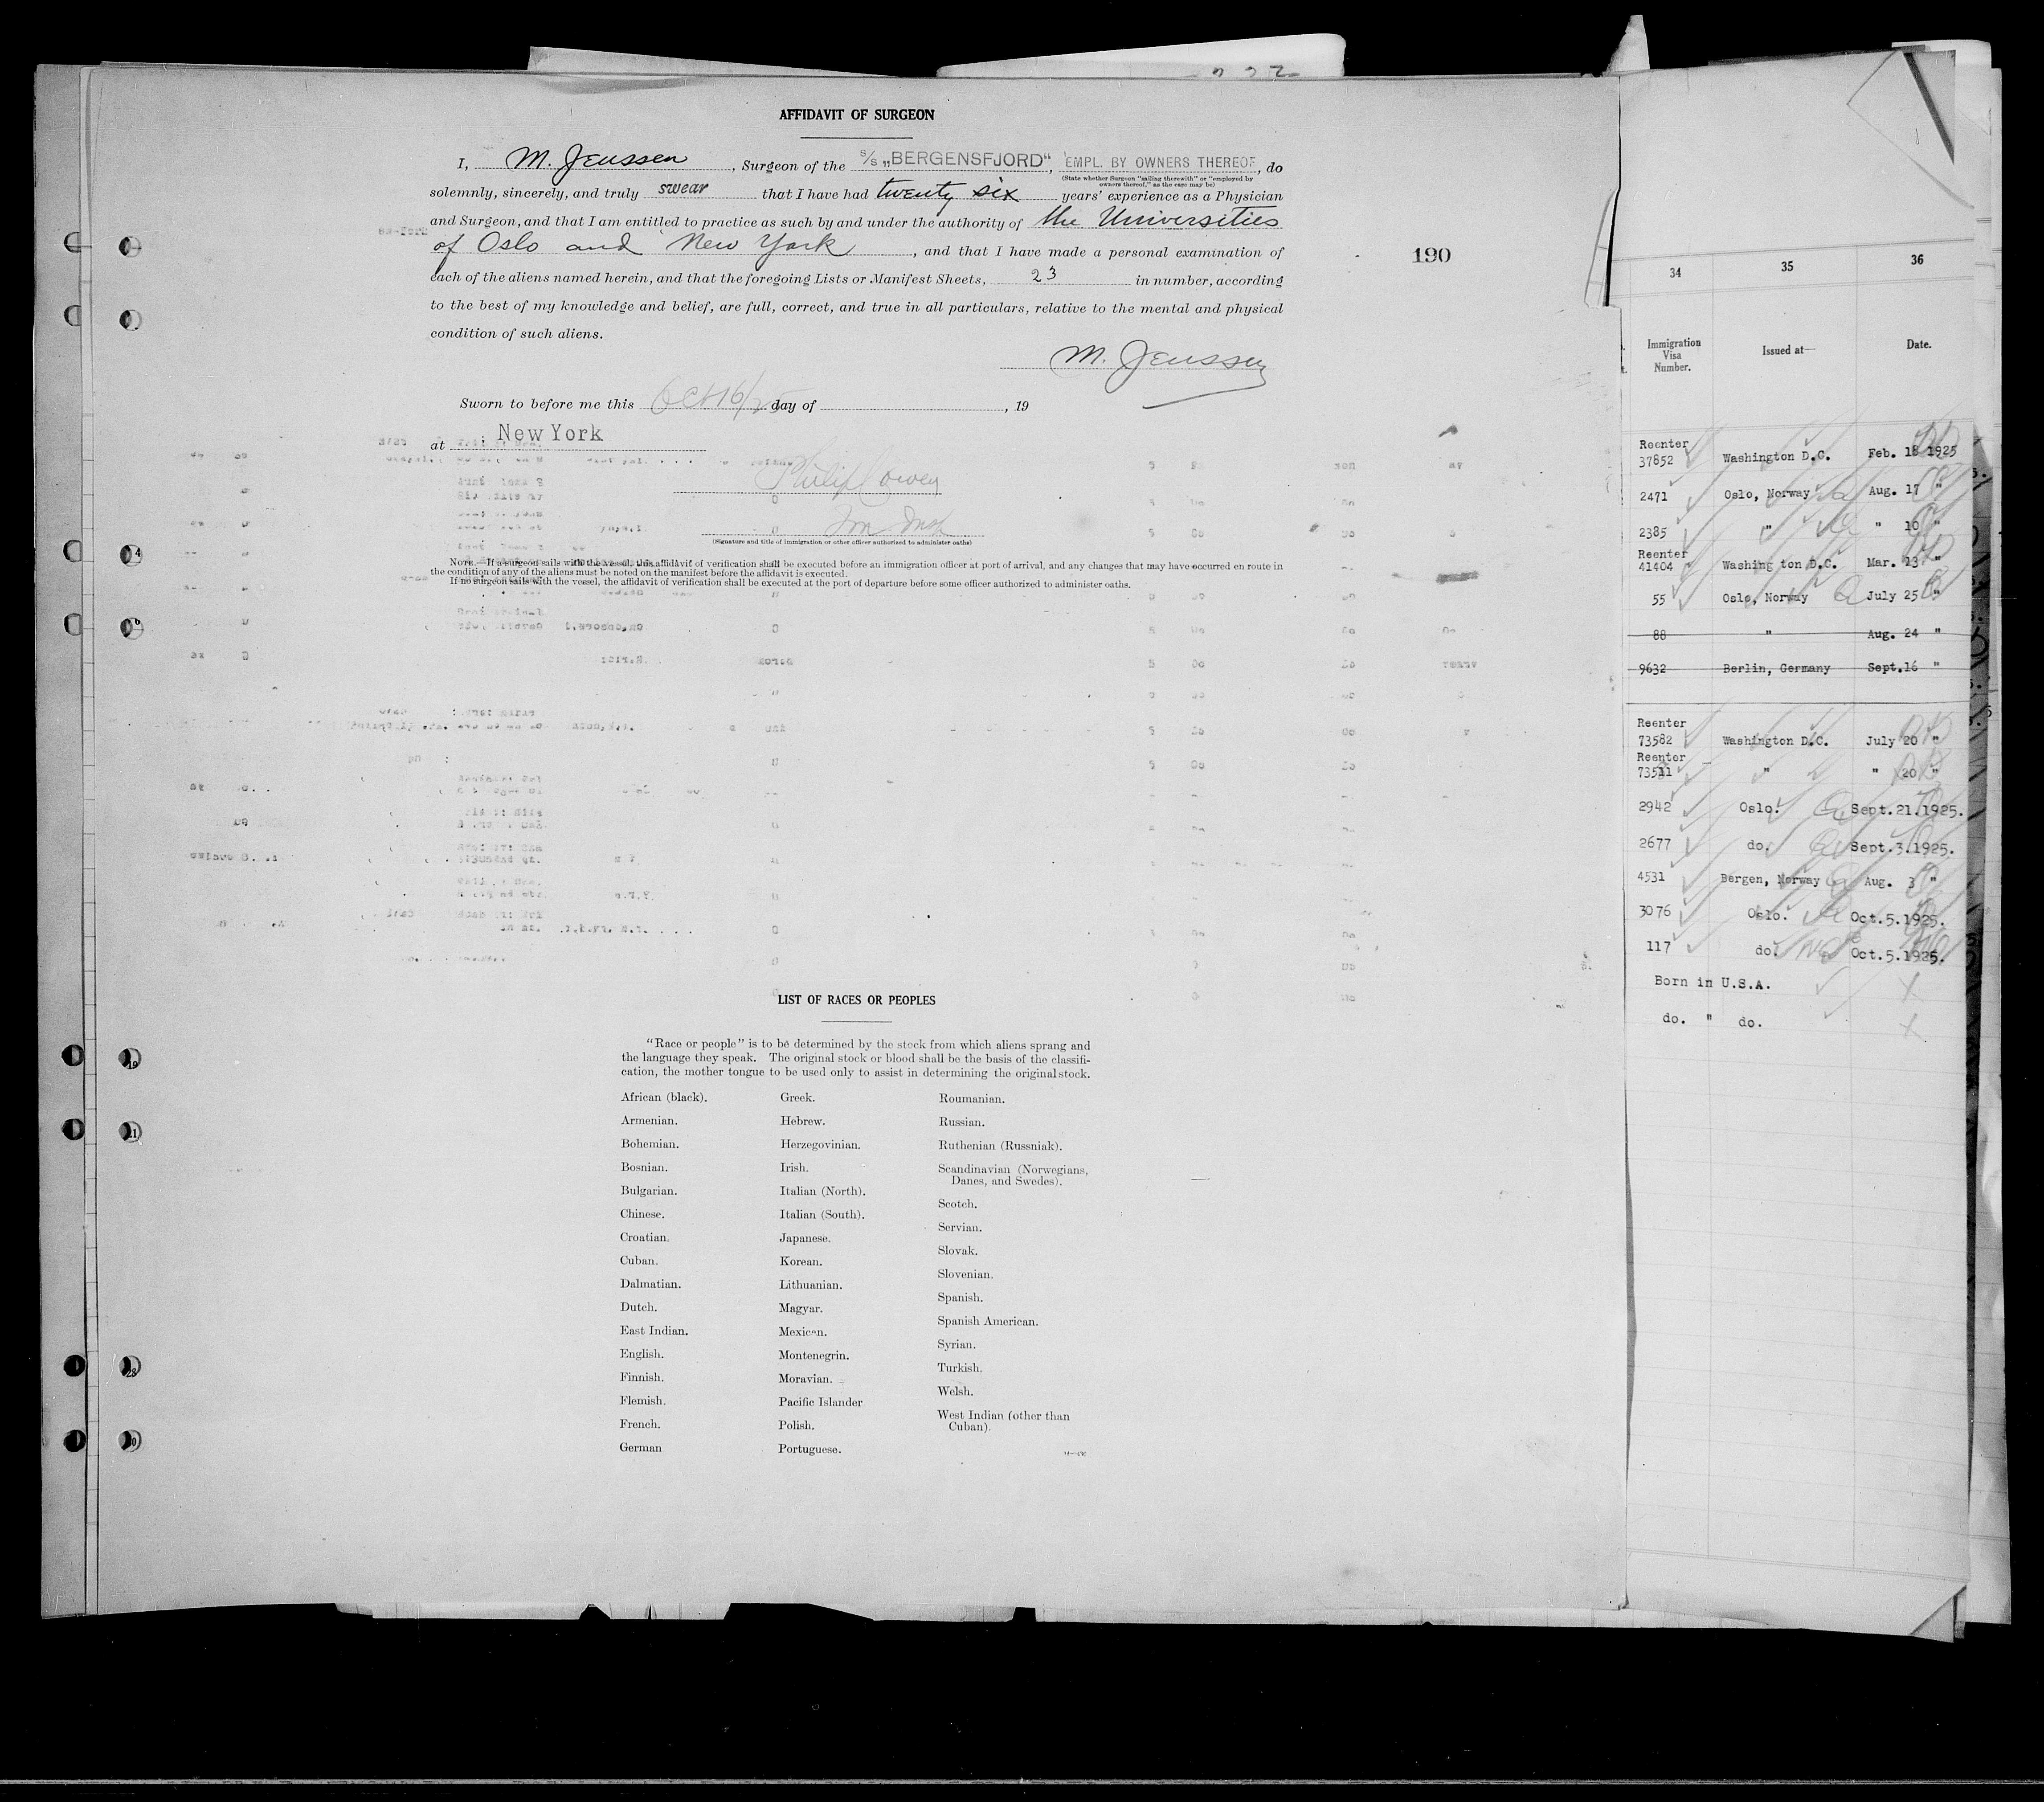 AFFIDAVIT OF SURGEON
I, M. Jenssen, Surgeon of the S/S „BERGENSFJORD“, EMPL. BY OWNERS THEREOF, do
(State whether Surgeon "sailing therewith" or "employed by
owners thereof," as the case may be)
solemnly, sincerely, and truly swear that I have had twenty six years' experience as a Physician
and Surgeon, and that I am entitled to practice as such by and under the authority of the Universities
of Oslo and New York, and that I have made a personal examination of
each of the aliens named herein, and that the foregoing Lists or Manifest Sheets, 23 in number, according
to the best of my knowledge and belief, are full, correct, and true in all particulars, relative to the mental and physical
condition of such aliens.
M. Jenssen
190
Sworn to before me this Oct 16/25 day of , 19
at New York
Philip Cowen
Imm Insp
(Signature and title of immigration or other officer authorized to administer oaths)
NOTE.—If a surgeon sails with the vessel, this affidavit of verification shall be executed before an immigration officer at port of arrival, and any changes that may have occurred en route in
the condition of any of the aliens must be noted on the manifest before the affidavit is executed.
If no surgeon sails with the vessel, the affidavit of verification shall be executed at the port of departure before some officer authorized to administer oaths.
LIST OF RACES OR PEOPLES
"Race or people" is to be determined by the stock from which aliens sprang and
the language they speak. The original stock or blood shall be the basis of the classifi-
cation, the mother tongue to be used only to assist in determining the original stock.
African (black).
Armenian.
Bohemian.
Bosnian.
Bulgarian.
Chinese.
Croatian.
Cuban.
Dalmatian.
Dutch.
East Indian.
English.
Finnish.
Flemish.
French.
German
Greek.
Hebrew.
Herzegovinian.
Irish.
Italian (North).
Italian (South).
Japanese.
Korean.
Lithuanian.
Magyar.
Mexican.
Montenegrin.
Moravian.
Pacific Islander
Polish.
Portuguese.
Roumanian.
Russian.
Ruthenian (Russniak).
Scandinavian (Norwegians,
Danes, and Swedes).
Scotch.
Servian.
Slovak.
Slovenian.
Spanish.
Spanish American.
Syrian.
Turkish.
Welsh.
West Indian (other than
Cuban).
34 35 36
Immigration
Visa
Number.
Issued at—
Date.
Reenter
37852 Washington D.C. Feb. 18 1925
2471 Oslo, Norway Aug. 17 "
2385 " " 10 "
Reenter
41404 Washing ton D.C. Mar. 13 "
55 Oslo, Norway July 25 "
88 " Aug. 24 "
9632 Berlin, Germany Sept.16 "
Reenter
73582 Washington D.C. July 20 "
Reenter
73511 " " 20 "
2942 Oslo. Sept.21.1925.
2677 do. Sept.3.1925.
4531 Bergen, Norway Aug. 3 "
3076 Oslo. Oct.5.1925.
117 do. Oct.5.1925.
Born in U.S.A.
do. " do.